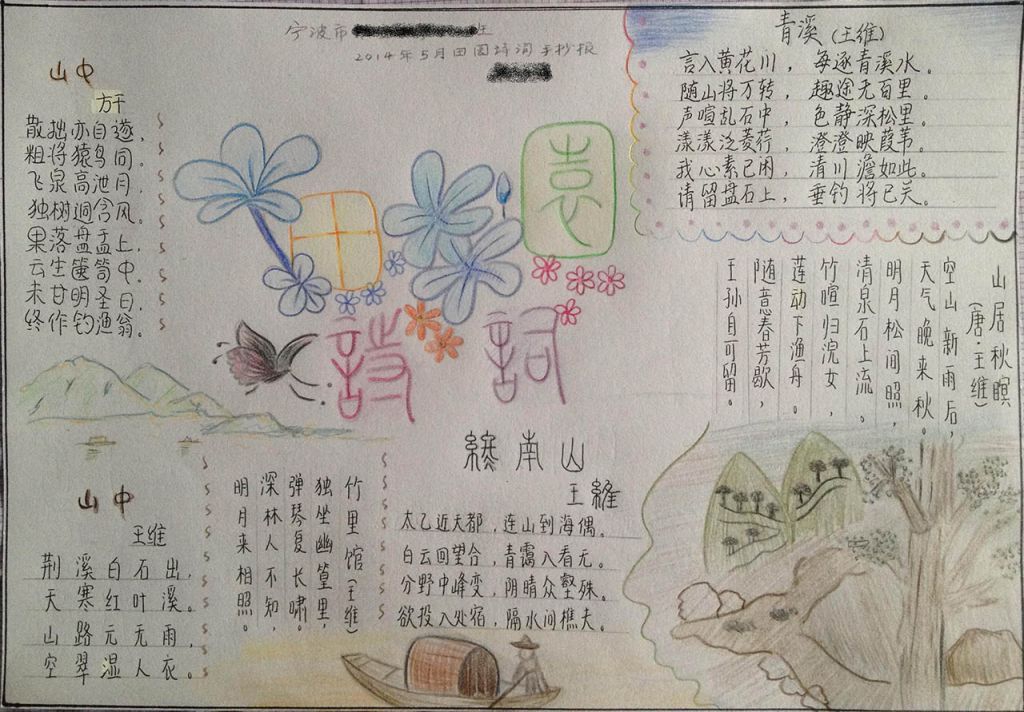 宁波市
2014年5月田园诗词手抄报
山中
方干
散拙亦自遂，
粗将猿鸟同。
飞泉高泄月，
独树迥含风。
果落盘盂上，
云生箧笥中。
未甘明圣日，
终作钓渔翁。
田園
詩詞
青溪(王维)
言入黄花川，每逐青溪水。
随山将万转，趣途无百里。
声喧乱石中，色静深松里。
漾漾泛菱荇，澄澄映葭苇。
我心素已闲，清川澹如此。
请留盘石上，垂钓将已矣。
山居秋暝
(唐·王维)
空山新雨后，
天气晚来秋。
明月松间照，
清泉石上流。
竹喧归浣女，
莲动下渔舟。
随意春芳歇，
王孙自可留。
山中
王维
荆溪白石出，
天寒红叶溪。
山路元无雨，
空翠湿人衣。
竹里馆(王维)
独坐幽篁里，
弹琴复长啸。
深林人不知，
明月来相照。
終南山
王維
太乙近天都，连山到海偶。
白云回望合，青霭入看无。
分野中峰变，阴晴众壑殊。
欲投入处宿，隔水问樵夫。